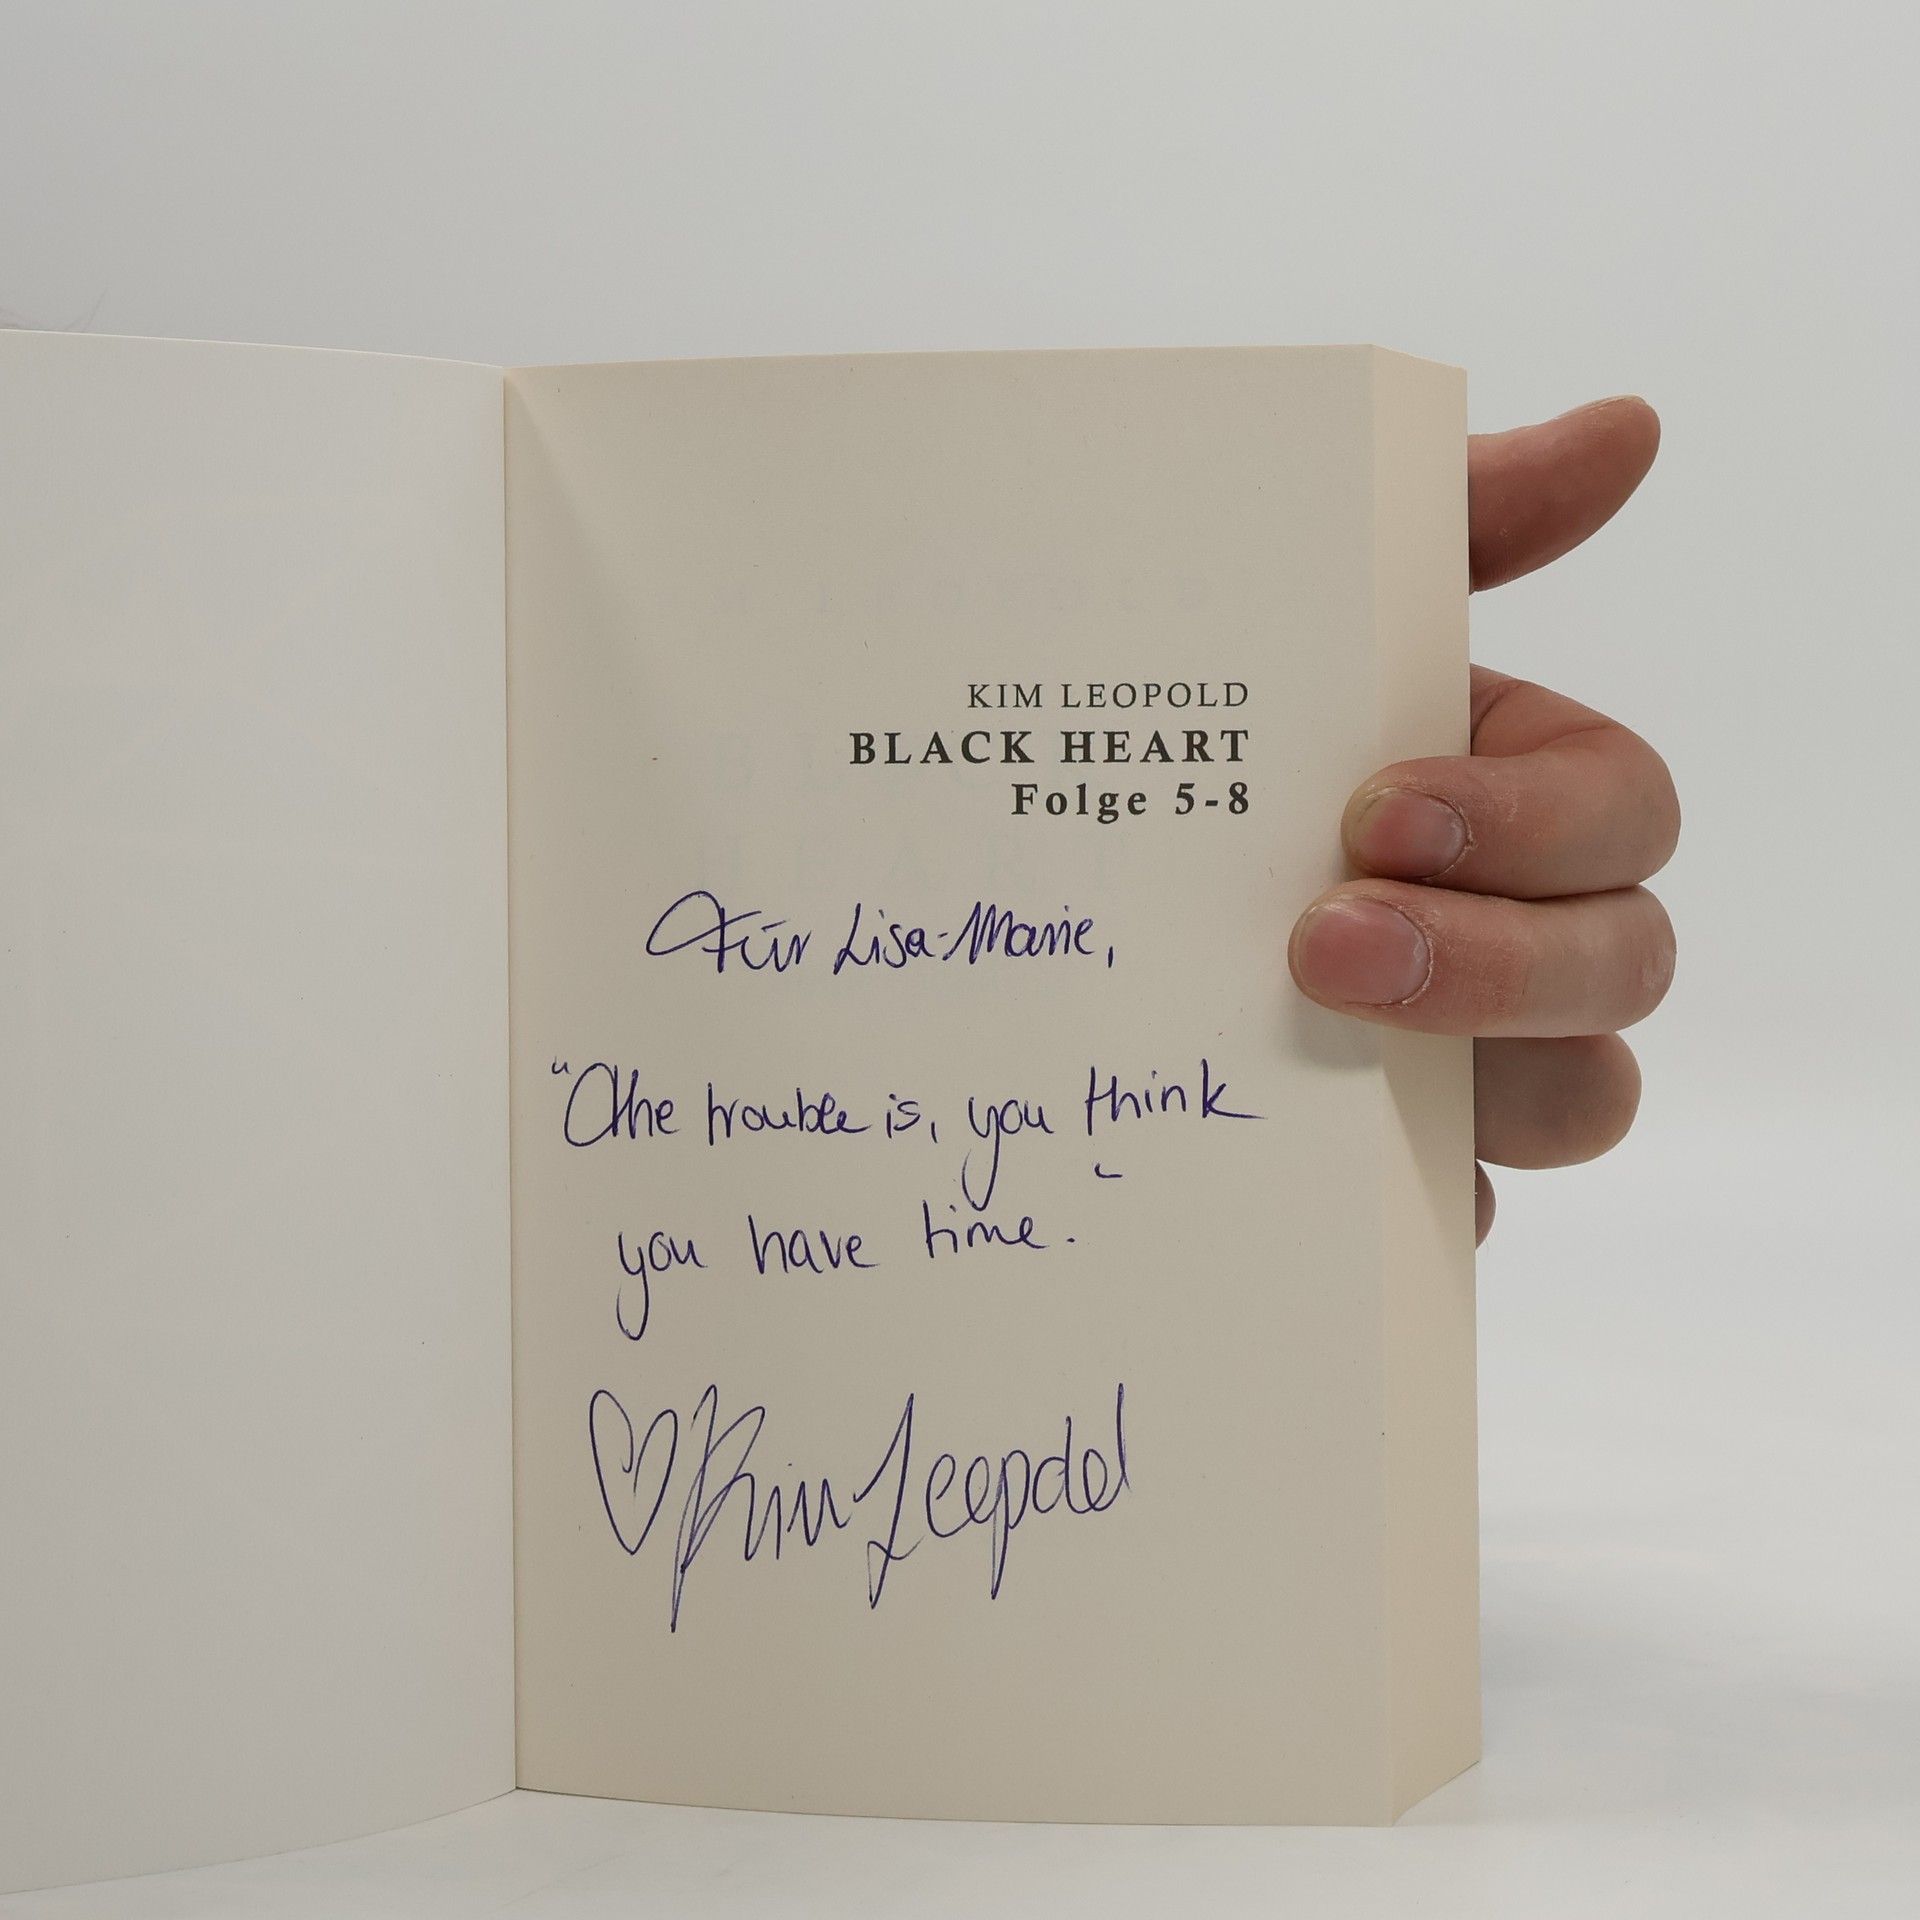 KIM LEOPOLD
BLACK HEART
Folge 5-8
Für Lisa-Marie,
"The trouble is, you think
you have time."
♡ Kim Leopold